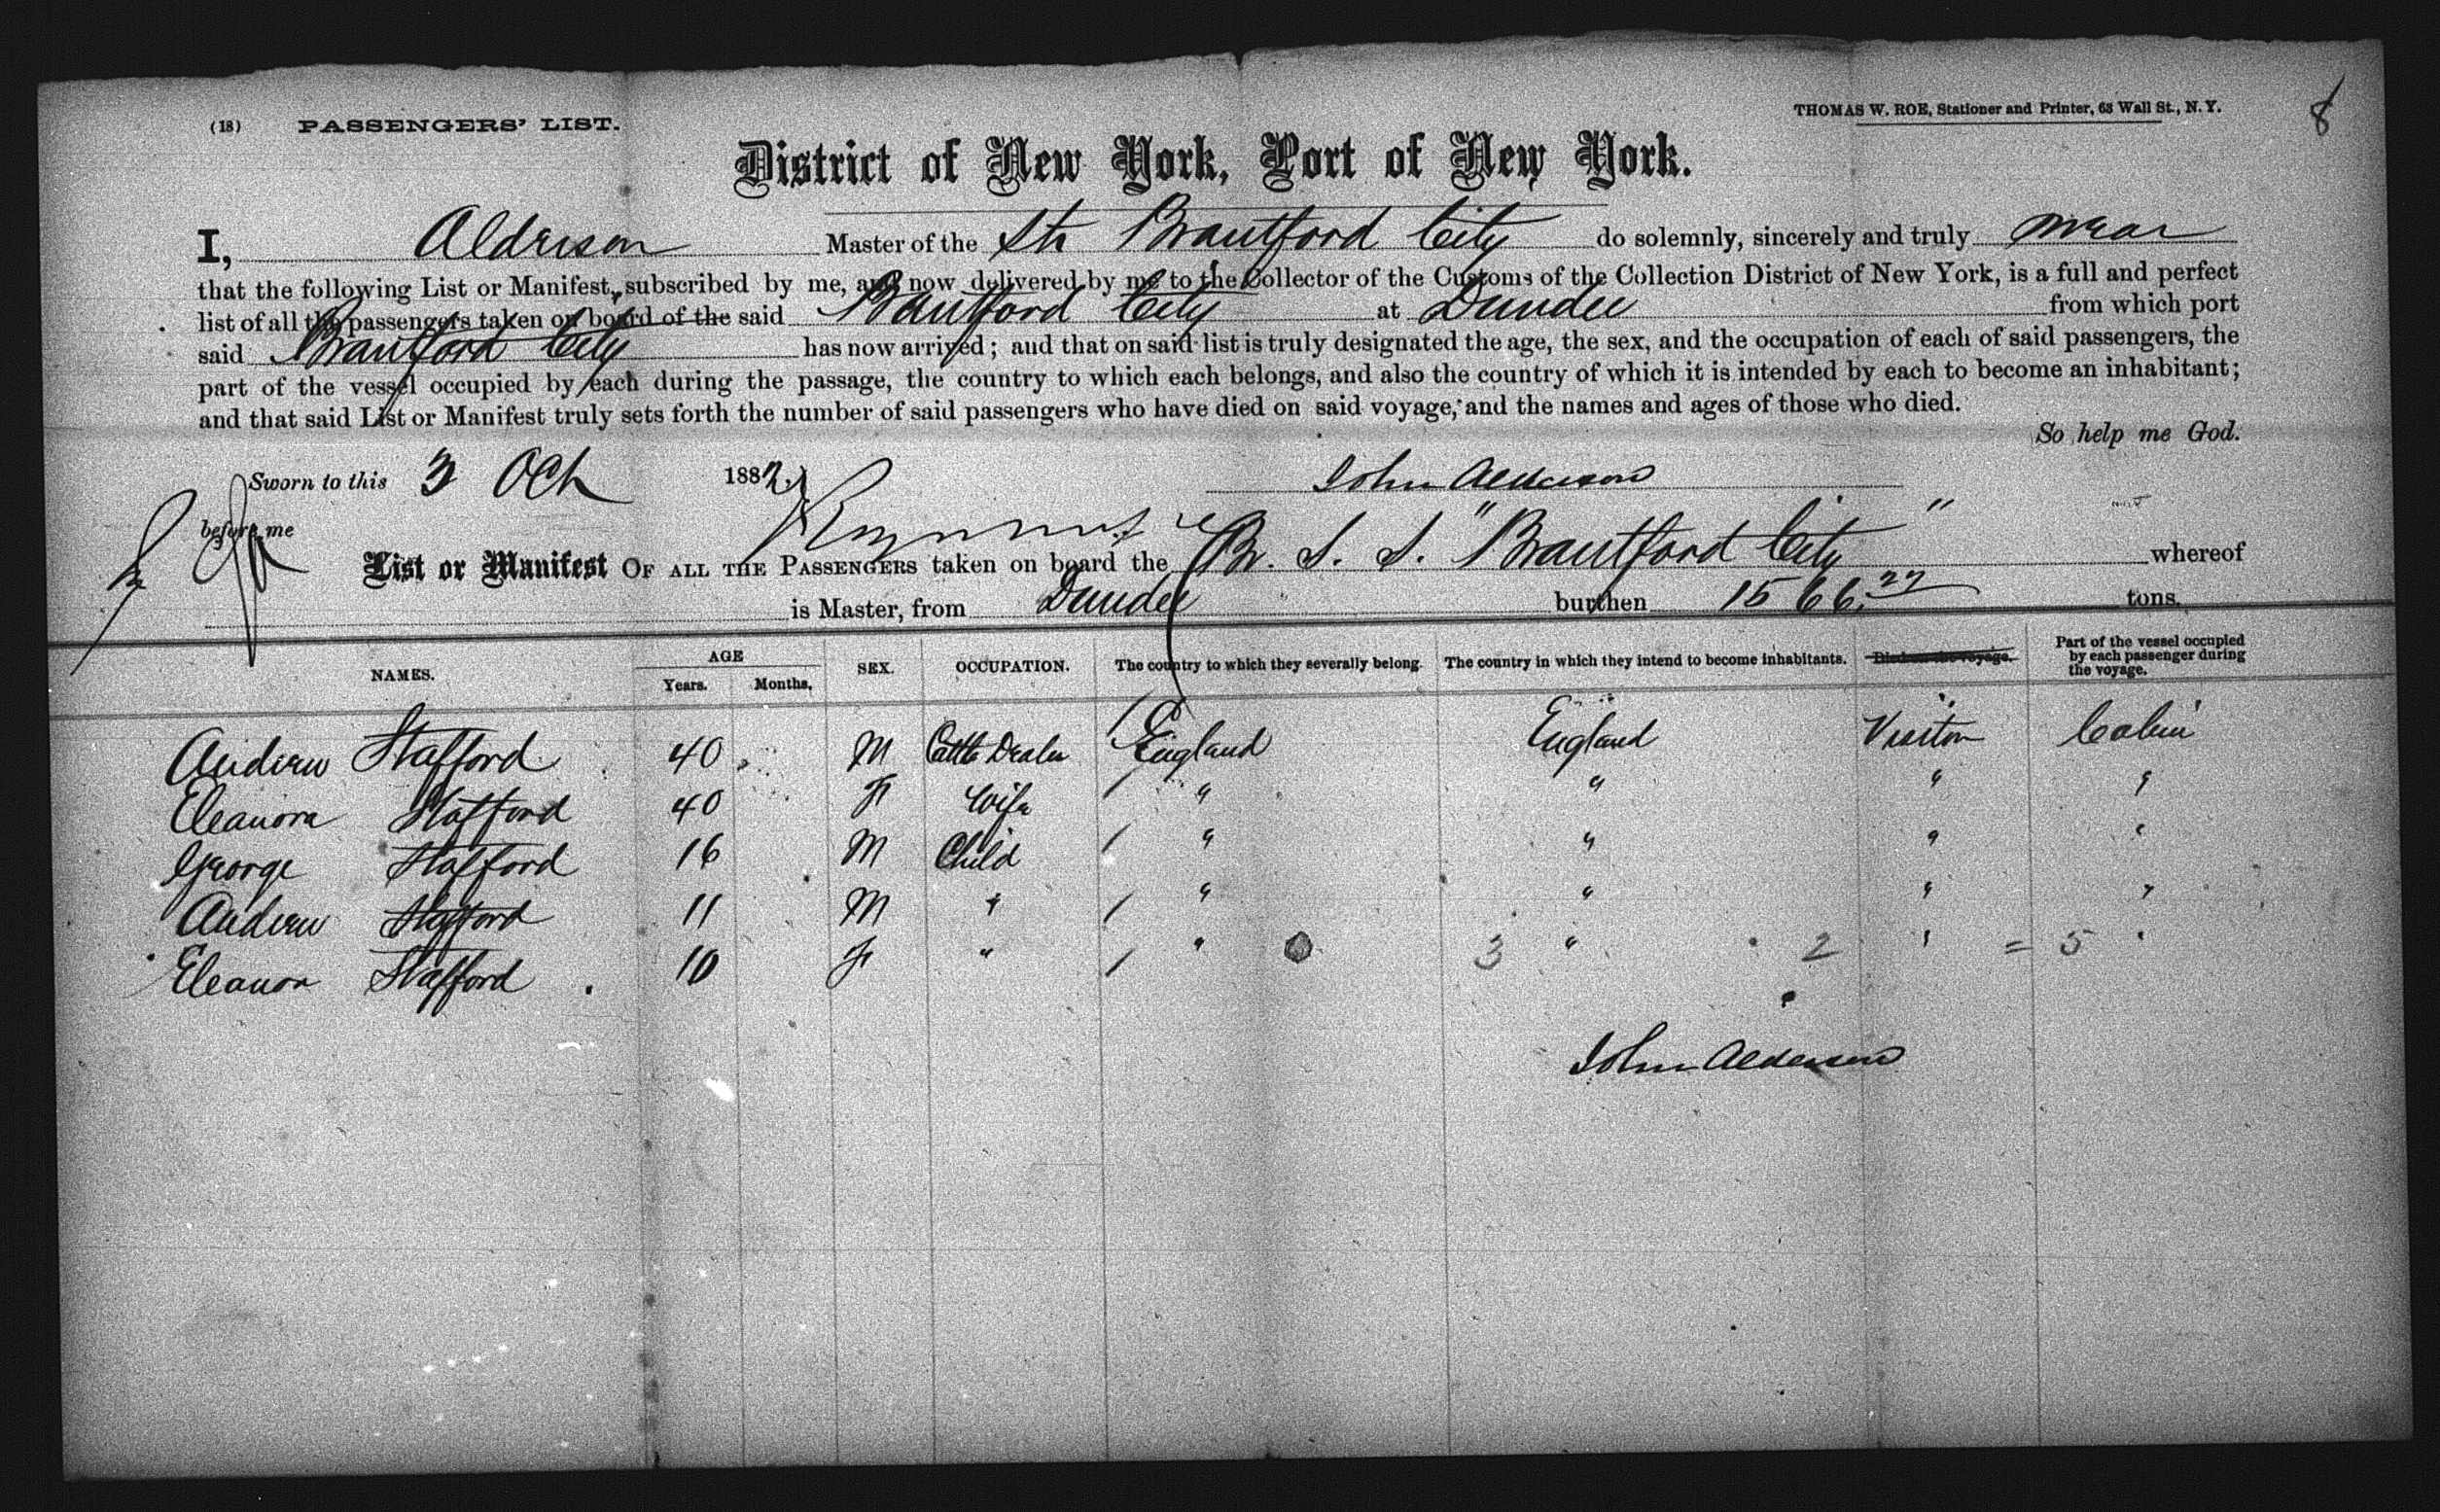 (18) PASSENGERS' LIST.
THOMAS W. ROE, Stationer and Printer, 63 Wall St., N. Y.
8
District of New York, Port of New York.
I, Alderson Master of the Str Brantford City do solemnly, sincerely and truly swear
that the following List or Manifest, subscribed by me, and now delivered by me to the Collector of the Customs of the Collection District of New York, is a full and perfect
list of all the passengers taken on board of the said Brantford City at Dundee from which port
said Brantford City has now arrived; and that on said list is truly designated the age, the sex, and the occupation of each of said passengers, the
part of the vessel occupied by each during the passage, the country to which each belongs, and also the country of which it is intended by each to become an inhabitant;
and that said List or Manifest truly sets forth the number of said passengers who have died on said voyage, and the names and ages of those who died.
So help me God.
Sworn to this 3 Oct 1882. John Alderson
before me
List or Manifest OF ALL THE PASSENGERS taken on board the Br. S. S. "Brantford City" whereof
is Master, from Dundee burthen 1566.27 tons.
NAMES. AGE Years. Months. SEX. OCCUPATION. The country to which they severally belong. The country in which they intend to become inhabitants. Died on the voyage. Part of the vessel occupied by each passenger during the voyage.
Andrew Stafford 40 M Cattle Dealer / England England Visitor Cabin
Eleanora Stafford 40 F Wife / " " " "
George Stafford 16 M Child / " " " "
Andrew Stafford 11 M " / " " " "
Eleanor Stafford 10 F " / " 3 " 2 " = 5 "
John Alderson